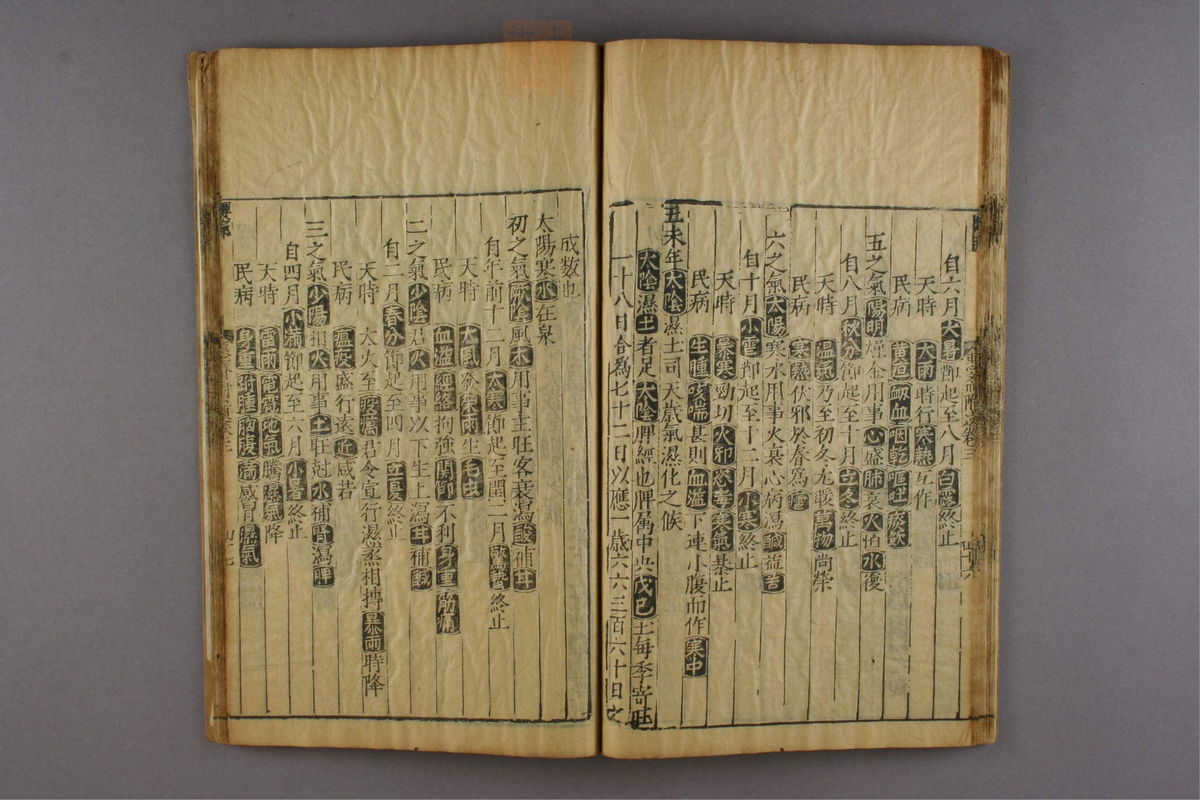 自六月大暑節起至八月白露終止
天時　大雨時行寒熱互作
民病　黃疸衂血咽乾嘔吐痰飲
五之氣陽明燥金用事心盛肺衰火怕水復
自八月秋分節起至十月立冬終止
天時　溫氣乃至初冬尤暖萬物尚榮
民病　寒熱伏邪於春為瘧
六之氣太陽寒水用事火衰心病瀉鹹益苦
自十月小雪節起至十二月小寒終止
天時　暴寒勁切火邪恣毒寒氣暴止
民病　生腫咳喘甚則血溢下連小腹而作寒中
丑未年太陰濕土司天歲氣濕化之候
太陰濕土者足太陰脾經也脾屬中央戊己土每季寄旺
一十八日合為七十二日以應一歲六六三百六十日之
成数也
太陽寒水在泉
初之氣厥陰風木用事主旺客衰瀉酸補甘
自年前十二月大寒節起至閏二月驚蟄終止
天時　大風發榮雨生毛虫
民病　血溢經絡拘強關節不利身重筋痛
二之氣少陰君火用事以下生上瀉甘補鹹
自二月春分節起至四月立夏終止
天時　大火至疫癘君令宣行濕蒸相摶暴雨時降
民病　瘟疫盛行遠近咸若
三之氣少陽相火用事土旺尅水補腎瀉脾
自四月小滿節起至六月小暑終止
天時　雷雨電雹地氣騰濕氣降
民病　身重胕腫胸腹滿感冒濕氣
四十七